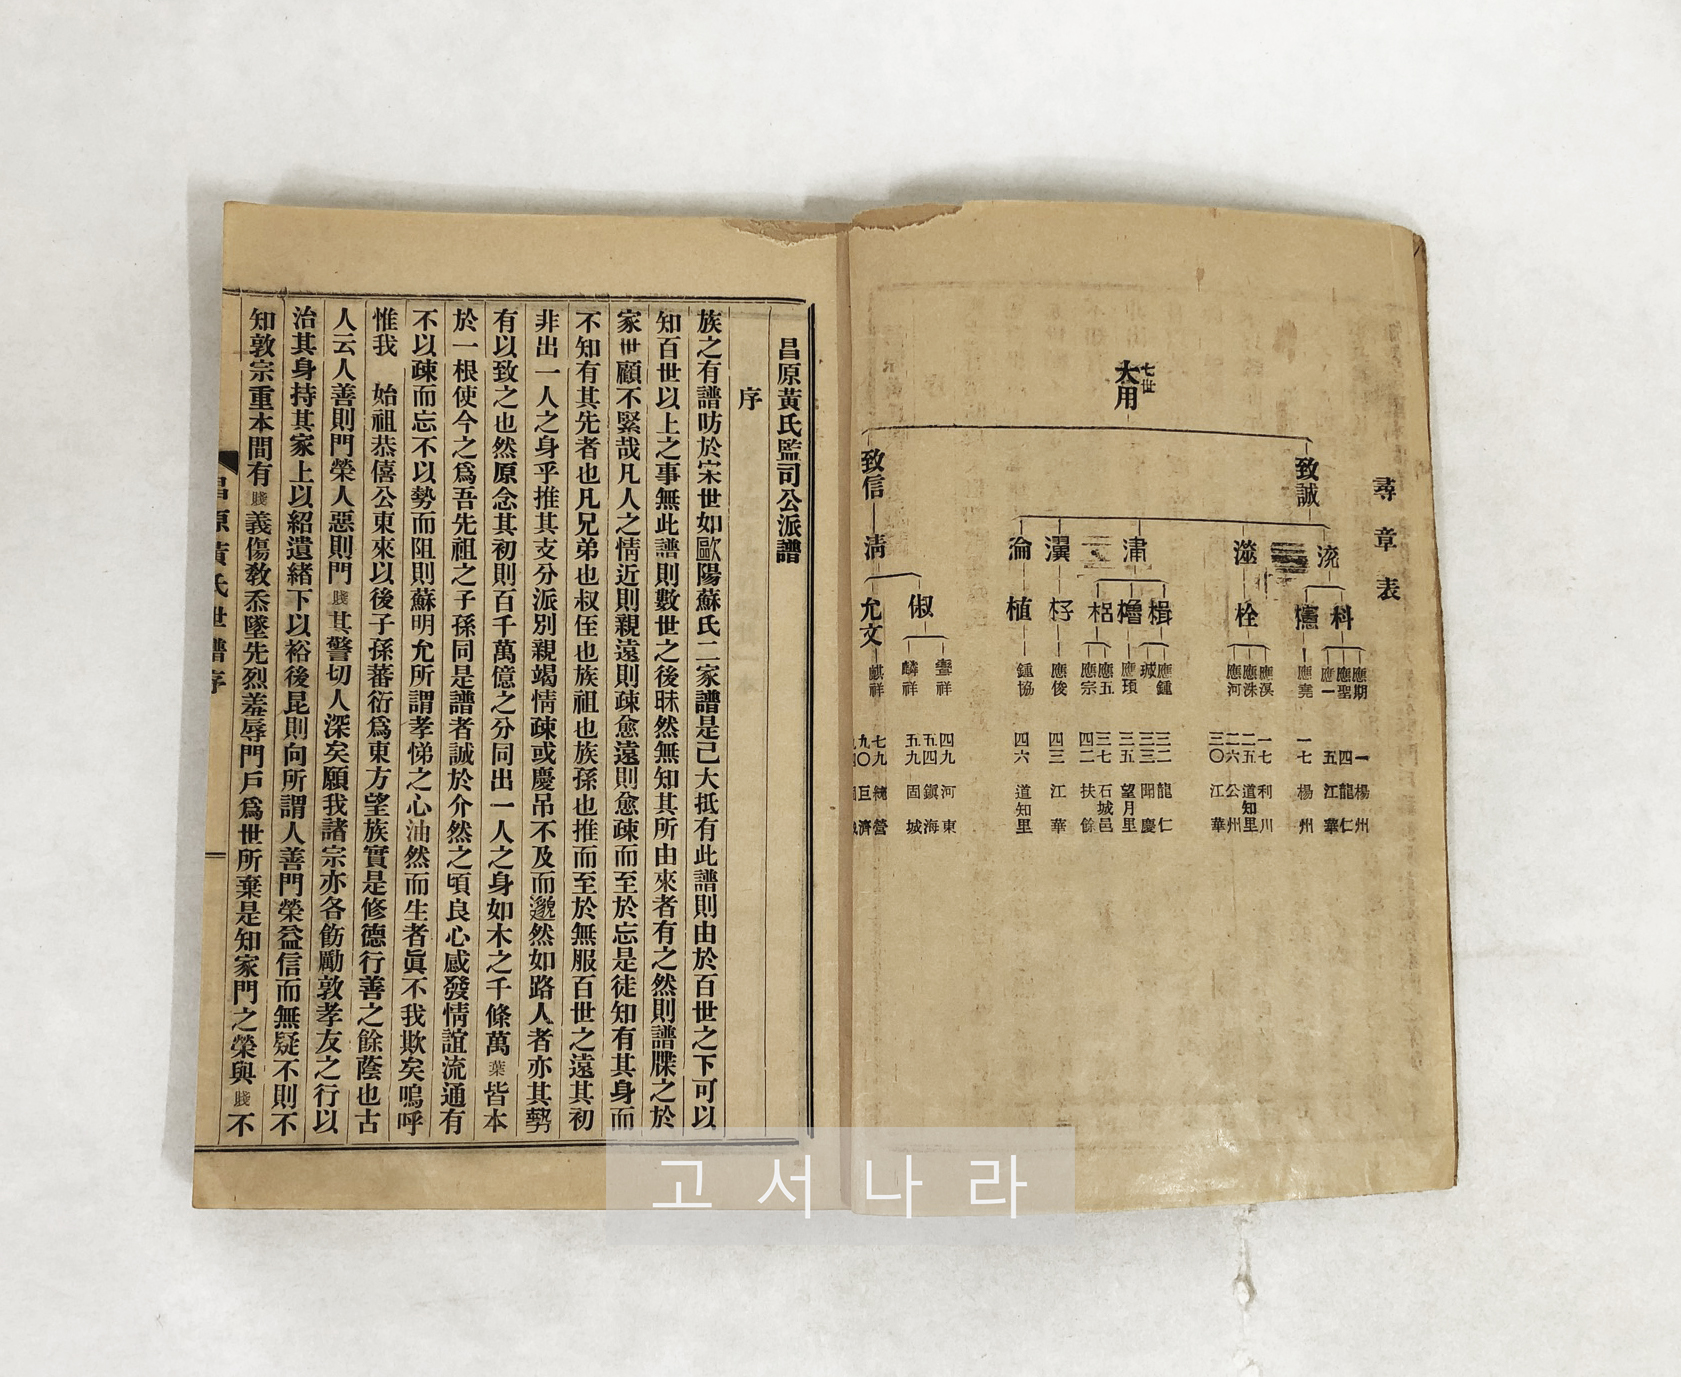 尋章表
七世
大用
致誠
致信
流
澨
潚
淸
科
栓
楫
櫓
梠
杍
植
俶
允文
應期
應聖
應一
應堯
應漢
應洙
應河
應鍾
城
應頊
應五
應宗
應俊
鍾協
麟祥
麒祥
一 楊州
四 龍仁
五 江華
一七 楊州
一七 利川
二五 道知里
二六 公州
三〇 江華
三二 龍仁
三三 聞慶
三五 望月里
三七 石城邑
四二 扶餘
四三 江華
四六 道知里
四九 河東
五四 鎭海
五九 固城
七九 統營
九〇 巨濟
昌原黃氏監司公派譜
序
族之有譜昉於宋世如歐陽蘇氏二家譜是已大抵有此譜則由於百世之下可以
知百世以上之事無此譜則數世之後昧然無知其所由來者有之然則譜牒之於
家世顧不緊哉凡人之情近則親遠則疎愈遠則愈疎而至於忘是徒知有其身而
不知有其先者也凡兄弟也叔侄也族祖也族孫也推而至於無服百世之遠其初
非出一人之身乎推其支分派別親竭情疎或慶吊不及而邈然如路人者亦其勢
有以致之也然原念其初則百千萬億之分同出一人之身如木之千條萬葉皆本
於一根使今之爲吾先祖之子孫同是譜者誠於介然之頃良心感發情誼流通有
不以疎而忘不以勢而阻則蘇明允所謂孝悌之心油然而生者眞不我欺矣嗚呼
惟我 始祖恭僖公東來以後子孫蕃衍爲東方望族實是修德行善之餘蔭也古
人云人善則門榮人惡則門賤其警切人深矣願我諸宗亦各飭勵敦孝友之行以
治其身持其家上以紹遺緒下以裕後昆則向所謂人善門榮益信而無疑不則不
知敦宗重本間有賤義傷敎忝墜先烈羞辱門戶爲世所棄是知家門之榮與賤不
昌原黃氏世譜序
고서나라